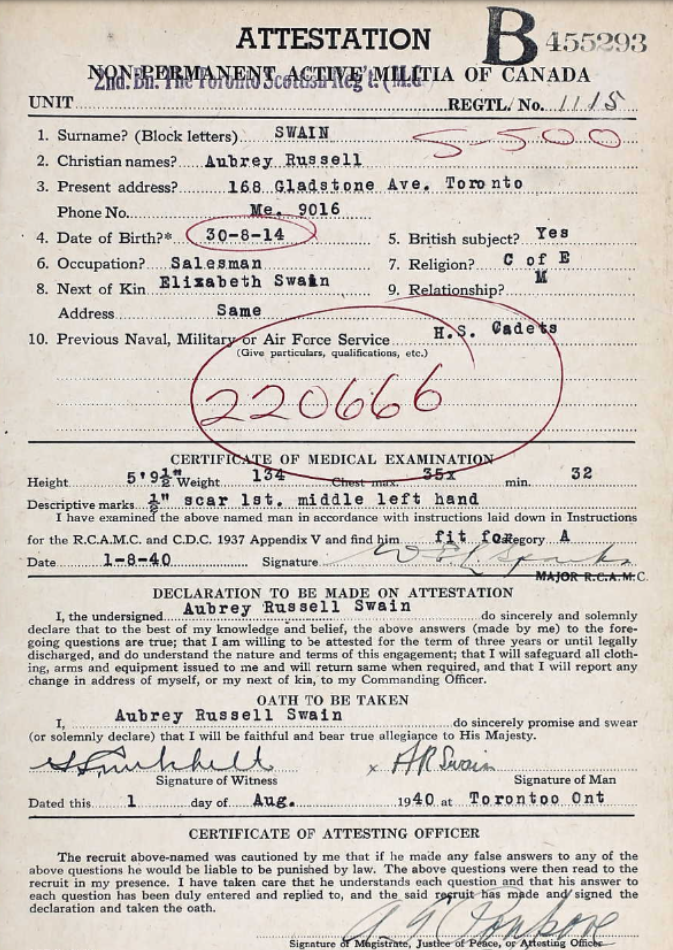 ATTESTATION B 455293
NON-PERMANENT ACTIVE MILITIA OF CANADA
2nd. Bn. The Toronto Scottish Reg't. (M.G
UNIT REGTL. No. 1115
1. Surname? (Block letters) SWAIN 5-500
2. Christian names? Aubrey Russell
3. Present address? 168 Gladstone Ave. Toronto
Phone No. Me. 9016
4. Date of Birth?* 30-8-14 5. British subject? Yes
6. Occupation? Salesman 7. Religion? C of E
8. Next of Kin Elizabeth Swain 9. Relationship? M
Address Same
10. Previous Naval, Military or Air Force Service H.S. Cadets
(Give particulars, qualifications, etc.)
220666
CERTIFICATE OF MEDICAL EXAMINATION
Height 5'9½" Weight 134 Chest max. 35x min. 32
Descriptive marks ½" scar lst. middle left hand
I have examined the above named man in accordance with instructions laid down in Instructions
for the R.C.A.M.C. and C.D.C. 1937 Appendix V and find him fit for Category A
Date 1-8-40 Signature
MAJOR R.C.A.M.C.
DECLARATION TO BE MADE ON ATTESTATION
I, the undersigned Aubrey Russell Swain do sincerely and solemnly
declare that to the best of my knowledge and belief, the above answers (made by me) to the fore-
going questions are true; that I am willing to be attested for the term of three years or until legally
discharged, and do understand the nature and terms of this engagement; that I will safeguard all cloth-
ing, arms and equipment issued to me and will return same when required, and that I will report any
change in address of myself, or my next of kin, to my Commanding Officer.
OATH TO BE TAKEN
I, Aubrey Russell Swain do sincerely promise and swear
(or solemnly declare) that I will be faithful and bear true allegiance to His Majesty.
x A R Swain
Signature of Witness Signature of Man
Dated this 1 day of Aug. 1940 at Torontoo Ont
CERTIFICATE OF ATTESTING OFFICER
The recruit above-named was cautioned by me that if he made any false answers to any of the
above questions he would be liable to be punished by law. The above questions were then read to the
recruit in my presence. I have taken care that he understands each question and that his answer to
each question has been duly entered and replied to, and the said recruit has made and signed the
declaration and taken the oath.
Signature of Magistrate, Justice of Peace, or Attesting Officer